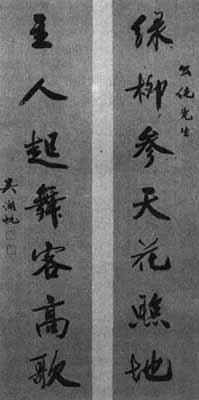 公先生
綠柳參天花照地
主人起舞客高歌
吳湖帆